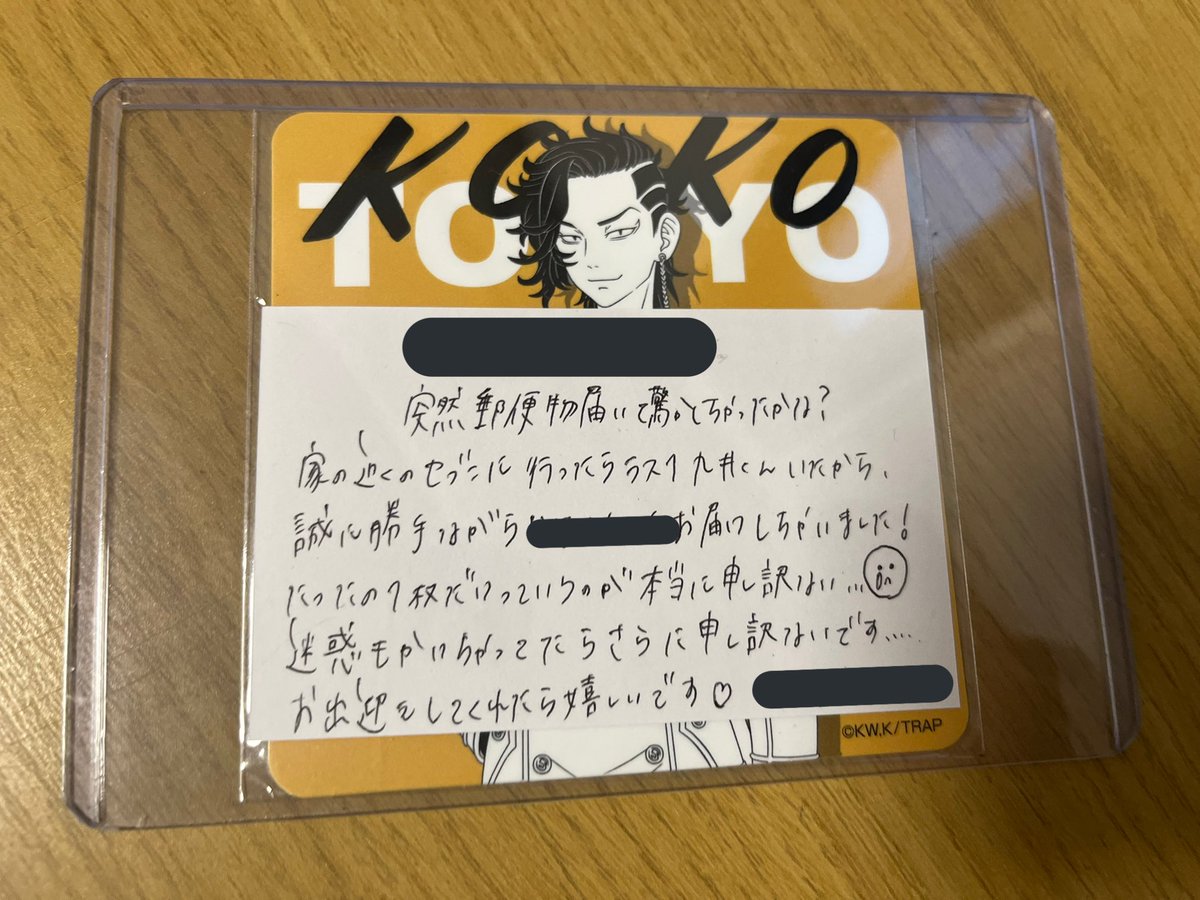 KOKO
TOKYO
突然郵便物届いて驚かせちゃったかな?
家の近くのセブンに行ったらラスト九井くんいたから、
誠に勝手ながら お届けしちゃいました!
たったの1枚だけっていうのが本当に申し訳ない…
迷惑もかけちゃってたらさらに申し訳ないです....
お出迎えしてくれたら嬉しいです♡
©KW.K/TRAP